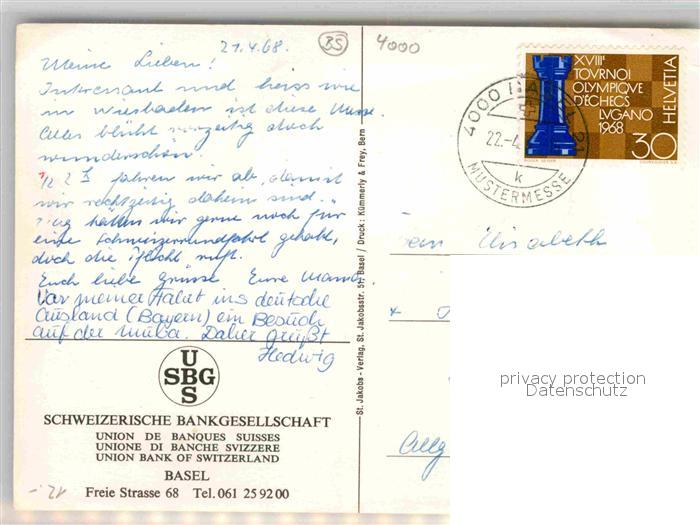 21.4.68.
BS
4000
Meine Lieben!
Interessant und heiss wie
in Wiesbaden ist diese Messe.
Alles blüht vorzeitig doch
wunderschön.
1/2 2 h fahren wir ab, damit
wir rechtzeitig daheim sind..
hätten wir gerne noch für
eine Schweizerrundfahrt gehabt,
doch die Pflicht ruft.
Euch liebe Grüsse Eure
Vor meiner Fahrt ins deutsche
Ausland (Bayern) ein Besuch
auf der Muba. Daher grüßt
Hedwig
XVIIIe
TOURNOI
OLYMPIQUE
D'ÉCHECS
LUGANO
1968
30
HELVETIA
4000 BASEL 21
22.-4.
k
MUSTERMESSE
Elisabeth
St. Jakobs - Verlag, St. Jakobsstr. 51, Basel / Druck: Kümmerly & Frey, Bern
privacy protection
Datenschutz
U
SBG
S
SCHWEIZERISCHE BANKGESELLSCHAFT
UNION DE BANQUES SUISSES
UNIONE DI BANCHE SVIZZERE
UNION BANK OF SWITZERLAND
BASEL
Freie Strasse 68 Tel. 061 25 92 00